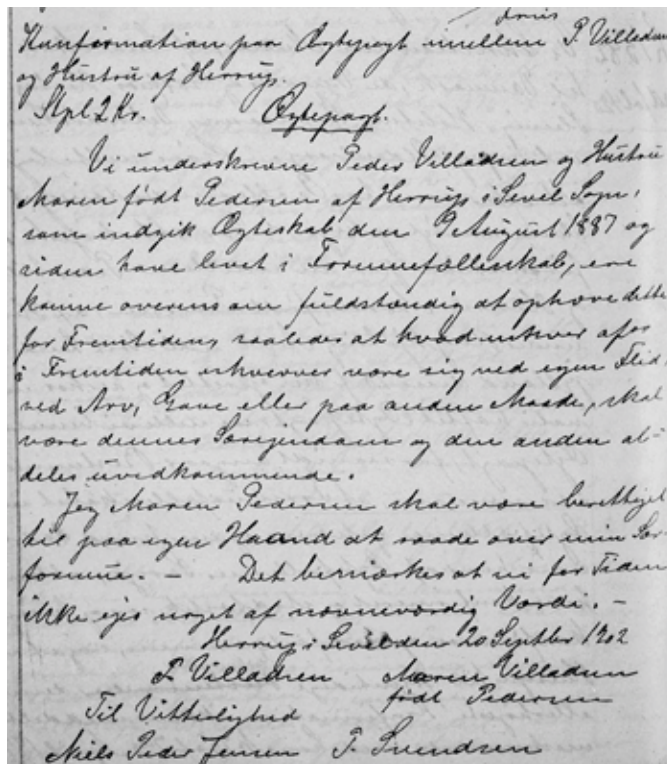 Konfirmation paa Ægtepagt imellem P. Villadsen
og Hustru af Herrup.
Stpl 2 Kr. Ægtepagt.
Vi underskrevne Peder Villadsen og Hustru
Maren født Pedersen af Herrup i Sevel Sogn,
som indgik Ægteskab den 9 August 1887 og
siden have levet i Formuefællesskab, ere
komne overens om fuldstændig at ophæve dette
for Fremtiden, saaledes at hvad enhver af os
i Fremtiden erhverver være sig ved egen Flid,
ved Arv, Gave eller paa anden Maade, skal
være dennes Særeiendom og den anden al-
deles uvedkommende.
Jeg Maren Pedersen skal være berettiget
til paa egen Haand at raade over min Sær-
formue. – Det bemærkes at vi for Tiden
ikke ejer noget af nævneværdig Værdi. –
Herrup i Sevel den 20 Septber 1902
P. Villadsen Maren Villadsen
født Pedersen
Til Vitterlighed
Niels Peder Jensen P. Svendsen